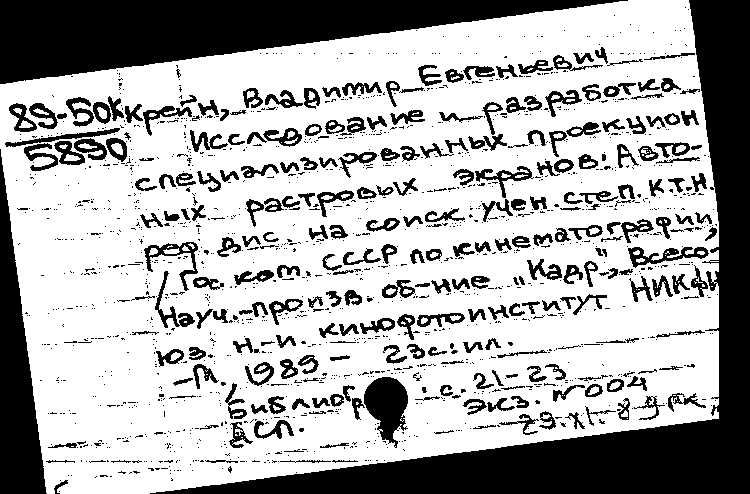 89-50к Крейн, Владимир Евгеньевич
5890 Исследование и разработка
специализированных проекцион
ных растровых экранов: Авто-
реф. дис. на соиск. учен. степ. к.т.н.
/ Гос. ком. СССР по кинематографии,
Науч.-произв. об-ние "Кадр", Всесо-
юз. н.-и. кинофотоинститут НИКФИ
-М., 1989. - 23с.: ил.
Библиогр.: с. 21-23
дсп. экз. №004
29.XI.89